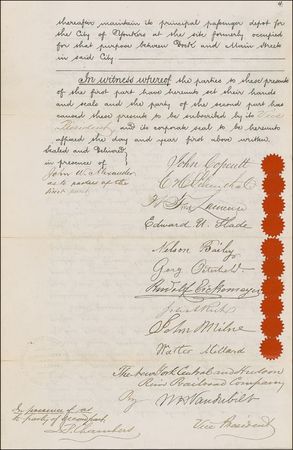 4.
thereafter maintain its principal passenger depot for
the City of Yonkers at the site formerly occupied
for that purpose between Dock and Main Streets
in said City
In witness whereof the parties to these presents
of the first part have hereunto set their hands
and seals and the party of the second part has
caused these presents to be subscribed by its Vice
President and its corporate seal to be hereunto
affixed the day and year first above written.
Sealed and Delivered
in presence of
John W. Alexander
as to parties of the
first part
John Copcutt
Lawrence
Edward U. Slade
Nelson Baily
Rudolf Eickemeyer
John P. Milne
Walter Millard
The New York Central and Hudson
River Railroad Company
By Wm H Vanderbilt
Vice President
In presence of as
to party of second part
Chambers